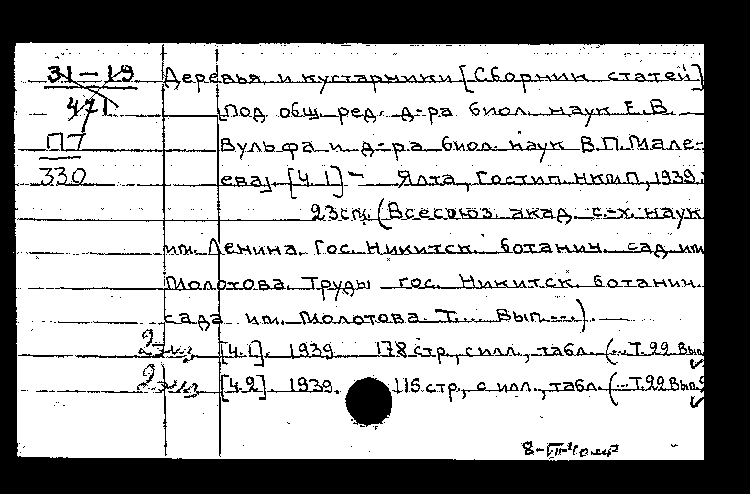 31–19 Деревья и кустарники [Сборник статей]
471 [Под общ. ред. д-ра биол. наук Е.В.
П7 Вульфа и д-ра биол. наук В.П. Мале-
330 ева]. [ч. 1] – Ялта, Гостип. НКМП, 1939.
23 см. (Всесоюз. акад. с.-х. наук
им. Ленина. Гос. Никитск. ботанич. сад им
Молотова. Труды гос. Никитск. ботанич.
сада им. Молотова. Т... Вып. ...).
2 экз [ч. 1]. 1939 178 стр., с илл., табл. (... Т. 22 Вып.
2 экз [ч. 2]. 1939. 115 стр, с илл., табл. (... Т. 22 Вып.